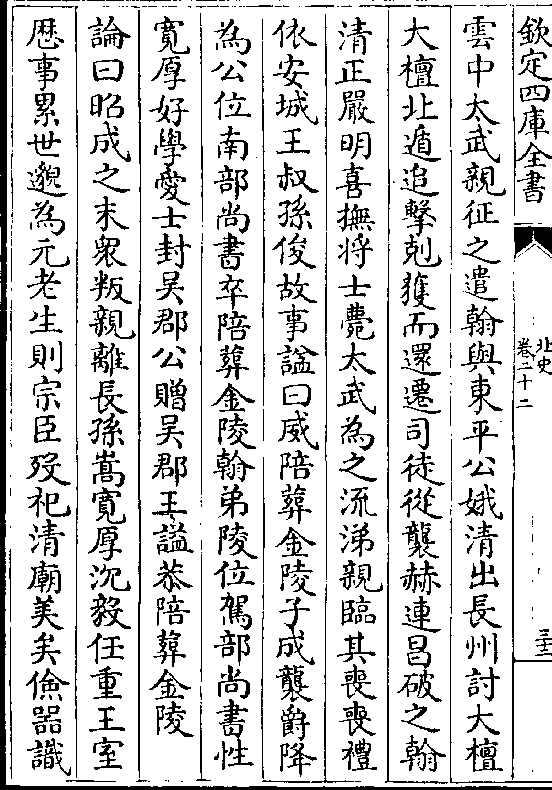 欽定四庫全書
北史
卷二十二
三十三
雲中太武親征之遣翰與東平公娥清出長州討大檀
大檀北遁追擊剋獲而還遷司徒從襲赫連昌破之翰
清正嚴明喜撫將士薨太武為之流涕親臨其喪喪禮
依安城王叔孫俊故事諡曰威陪葬金陵子成襲爵降
為公位南部尚書卒陪葬金陵翰弟陵位駕部尚書性
寛厚好學愛士封吴郡公贈吴郡王諡恭陪葬金陵
論曰昭成之末衆叛親離長孫嵩寛厚沉毅任重王室
歴事累世邈為元老生則宗臣歿祀清廟美矣儉器識